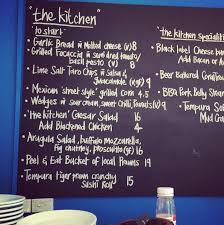 "the kitchen"
to start
Garlic Bread w Melted cheese (v) 8
Grilled Focaccia w sundried tomato
basil pesto (v) 8
Lime Salt Taro Chips w Salsa &
Guacamole (v)(gf) 9
Mexican 'street style' grilled corn (v) 4
Wedges w sour cream, sweet chilli, (v) 9
'the kitchen' Caesar Salad 16
Add Blackened Chicken 4
Arugula Salad, buffalo mozzarella,
fig chutney, prosciutto (gf) 16
Peel & Eat Bucket of local Prawns 19
Tempura tiger prawn candy
Sushi Roll 15
"the kitchen specialit
Black Label Cheese bu
Add Bacon or A
Beer Battered
BBQ Pork Belly
Tempura
Mud